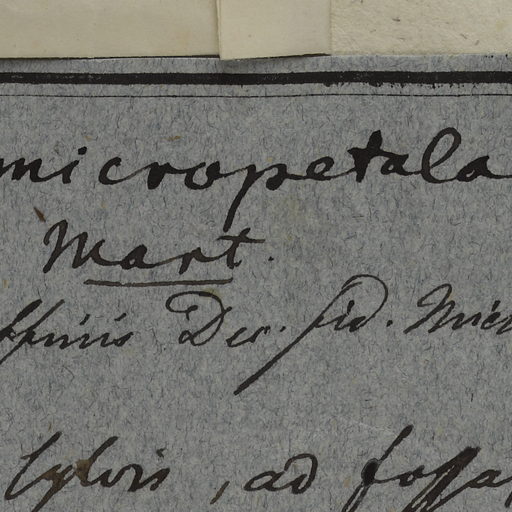 micropetala
Mart.
ffinis Dec. sid. Micr
Sylvis, ad fossa